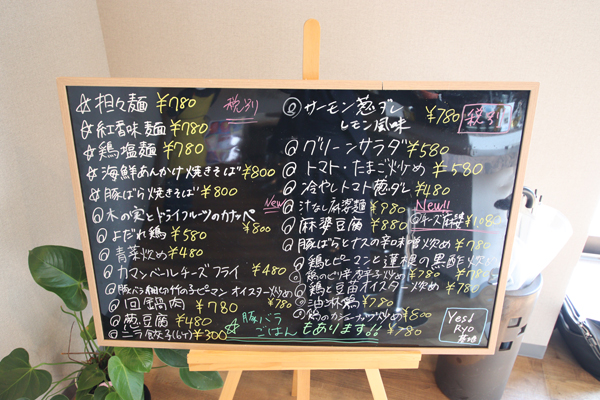 ☆担々麺 ¥780 税別
☆紅香味麺 ¥780
☆鶏塩麺 ¥780
☆海鮮あんかけ焼きそば ¥800
☆豚ばら焼きそば ¥800
New
@木の実とドライフルーツのカナッペ ¥800
@よだれ鶏 ¥580
@青菜炒め ¥480
@カマンベールチーズフライ ¥480
@豚バラ細切竹の子ピーマンオイスター炒め
@回鍋肉 ¥780 ¥780
@葱豆腐 ¥480
@ニラ餃子(6ケ) ¥300
@サーモン葱ダレ
レモン風味 ¥780 税別
@グリーンサラダ ¥580
@トマト・たまご炒め ¥580
@冷やしトマト葱ダレ ¥480
@汁なし麻婆麺 ¥980 New!!
@麻婆豆腐 ¥880 @チーズ麻婆 ¥1,080
@豚ばらとナスの辛味噌炒め ¥780
@鶏とピーマンと蓮根の黒酢炒め
@鶏のピリ辛唐辛子炒め ¥780 ¥780
@鶏と豆苗オイスター炒め ¥780
@油淋鶏 ¥780
@鶏のカシューナッツ炒め ¥800
☆豚バラ
ごはんもあります!! ¥780
Yes!
Ryo